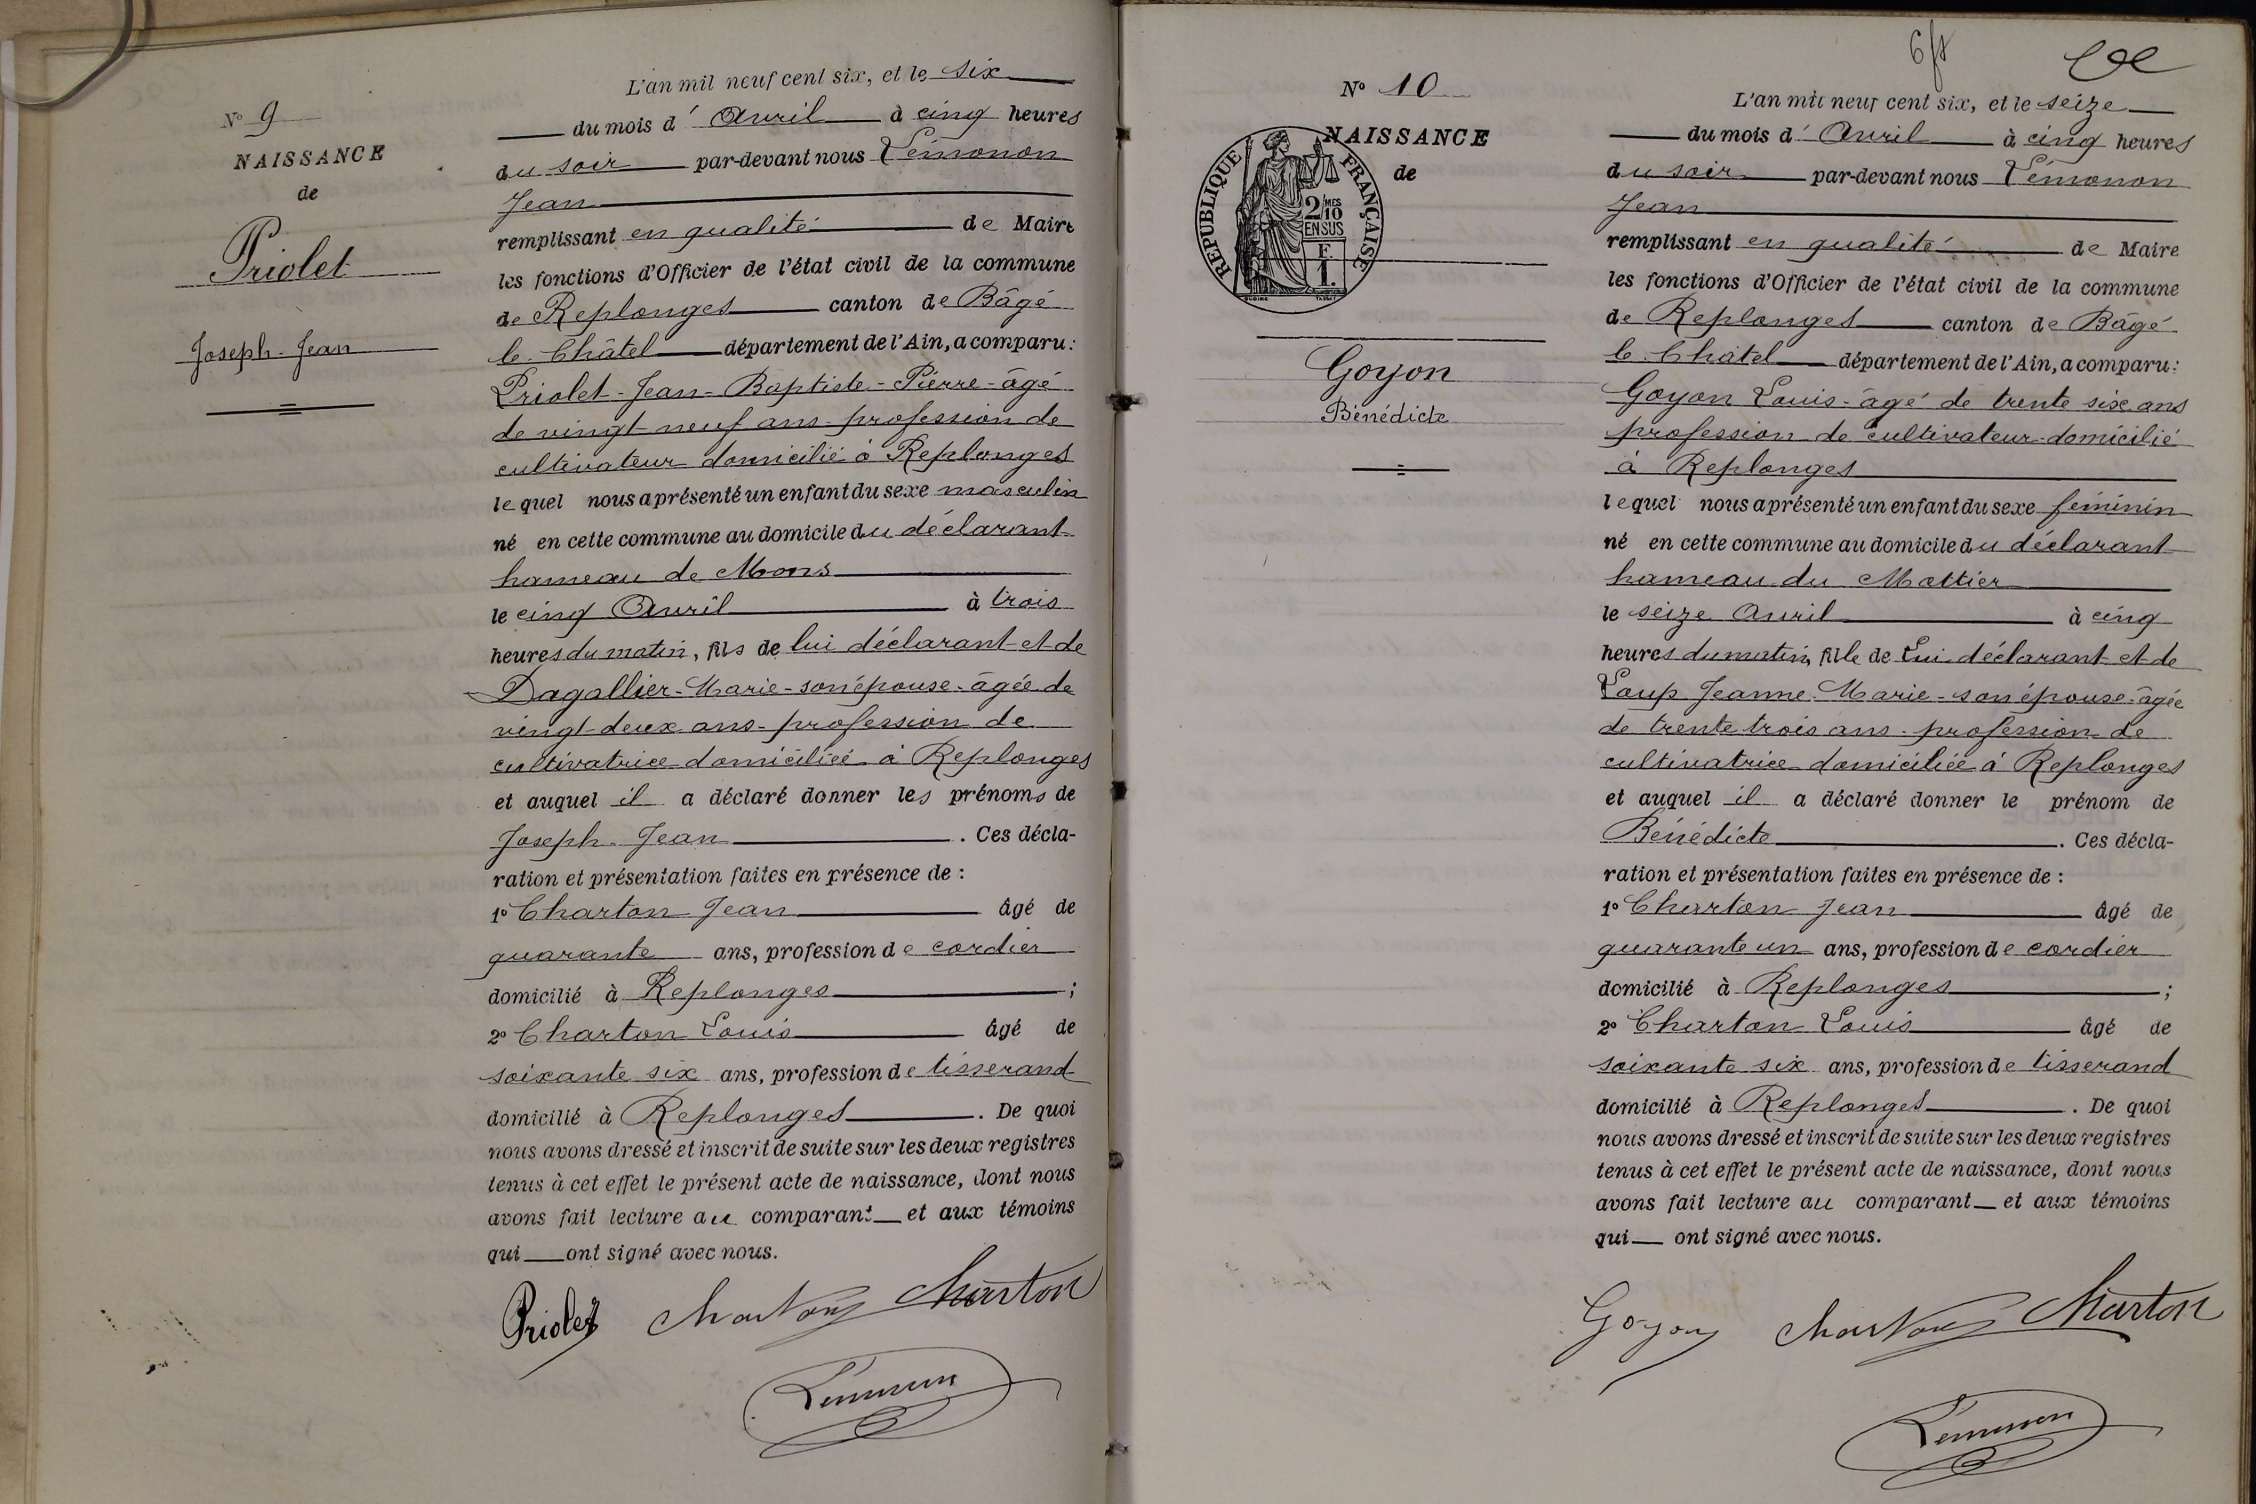 Nº 9
NAISSANCE
de
Priolet
Joseph-Jean
L'an mil neuf cent six, et le six
du mois d' Avril à cinq heures
du soir par-devant nous Lémonon
Jean
remplissant en qualité de Maire
les fonctions d'Officier de l'état civil de la commune
de Replonges canton de Bâgé
le Châtel département de l'Ain, a comparu :
Priolet-Jean-Baptiste-Pierre-âgé
de vingt neuf ans profession de
cultivateur domicilié à Replonges
lequel nous a présenté un enfant du sexe masculin
né en cette commune au domicile du déclarant
hameau de Mons
le cinq Avril à trois
heures du matin, fils de lui déclarant et de
Dagallier-Marie-son épouse-âgée de
vingt deux ans-profession de
cultivatrice domiciliée à Replonges
et auquel il a déclaré donner les prénoms de
Joseph-Jean. Ces décla-
ration et présentation faites en présence de :
1º Charton Jean âgé de
quarante ans, profession de cordier
domicilié à Replonges ;
2º Charton Louis âgé de
soixante six ans, profession de tisserand
domicilié à Replonges. De quoi
nous avons dressé et inscrit de suite sur les deux registres
tenus à cet effet le présent acte de naissance, dont nous
avons fait lecture au comparant et aux témoins
qui ont signé avec nous.
Priolet Charton Charton
Lémonon
6 ft
Nº 10
NAISSANCE
de
RÉPUBLIQUE FRANÇAISE
2/10 MES
EN SUS
F.
1.
Goyon
Bénédicte
L'an mil neuf cent six, et le seize
du mois d' Avril à cinq heures
du soir par-devant nous Lémonon
Jean
remplissant en qualité de Maire
les fonctions d'Officier de l'état civil de la commune
de Replonges canton de Bâgé
le Châtel département de l'Ain, a comparu :
Goyon Louis-âgé de trente six ans
profession de cultivateur-domicilié
à Replonges
lequel nous a présenté un enfant du sexe féminin
né en cette commune au domicile du déclarant
hameau du Mottier
le seize Avril à cinq
heures du matin, fille de Lui déclarant et de
Loup Jeanne-Marie-son épouse-âgée
de trente trois ans-profession de
cultivatrice domiciliée à Replonges
et auquel il a déclaré donner le prénom de
Bénédicte. Ces décla-
ration et présentation faites en présence de :
1º Charton Jean âgé de
quarante un ans, profession de cordier
domicilié à Replonges ;
2º Charton Louis âgé de
soixante six ans, profession de tisserand
domicilié à Replonges. De quoi
nous avons dressé et inscrit de suite sur les deux registres
tenus à cet effet le présent acte de naissance, dont nous
avons fait lecture au comparant et aux témoins
qui ont signé avec nous.
Goyon Charton Charton
Lémonon